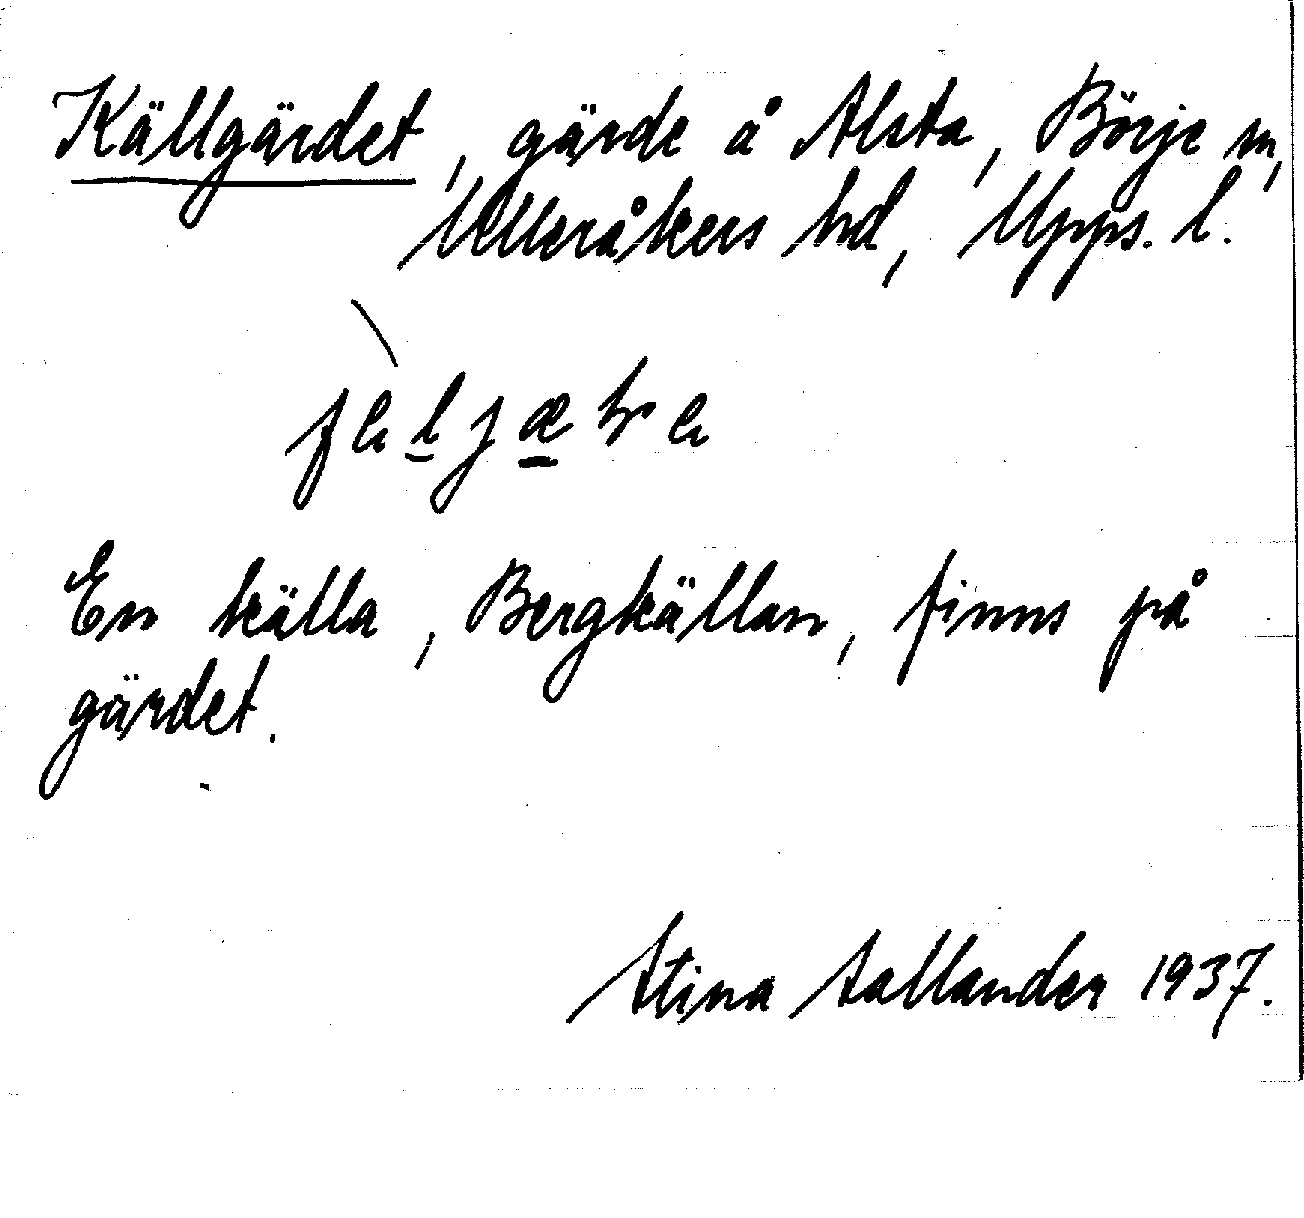 Källgärdet, gärde å Alsta, Börje sn,
Ulleråkers hd, Upps. l.
En källa, Bergkällan, finns på
gärdet.
Stina Sallander 1937.